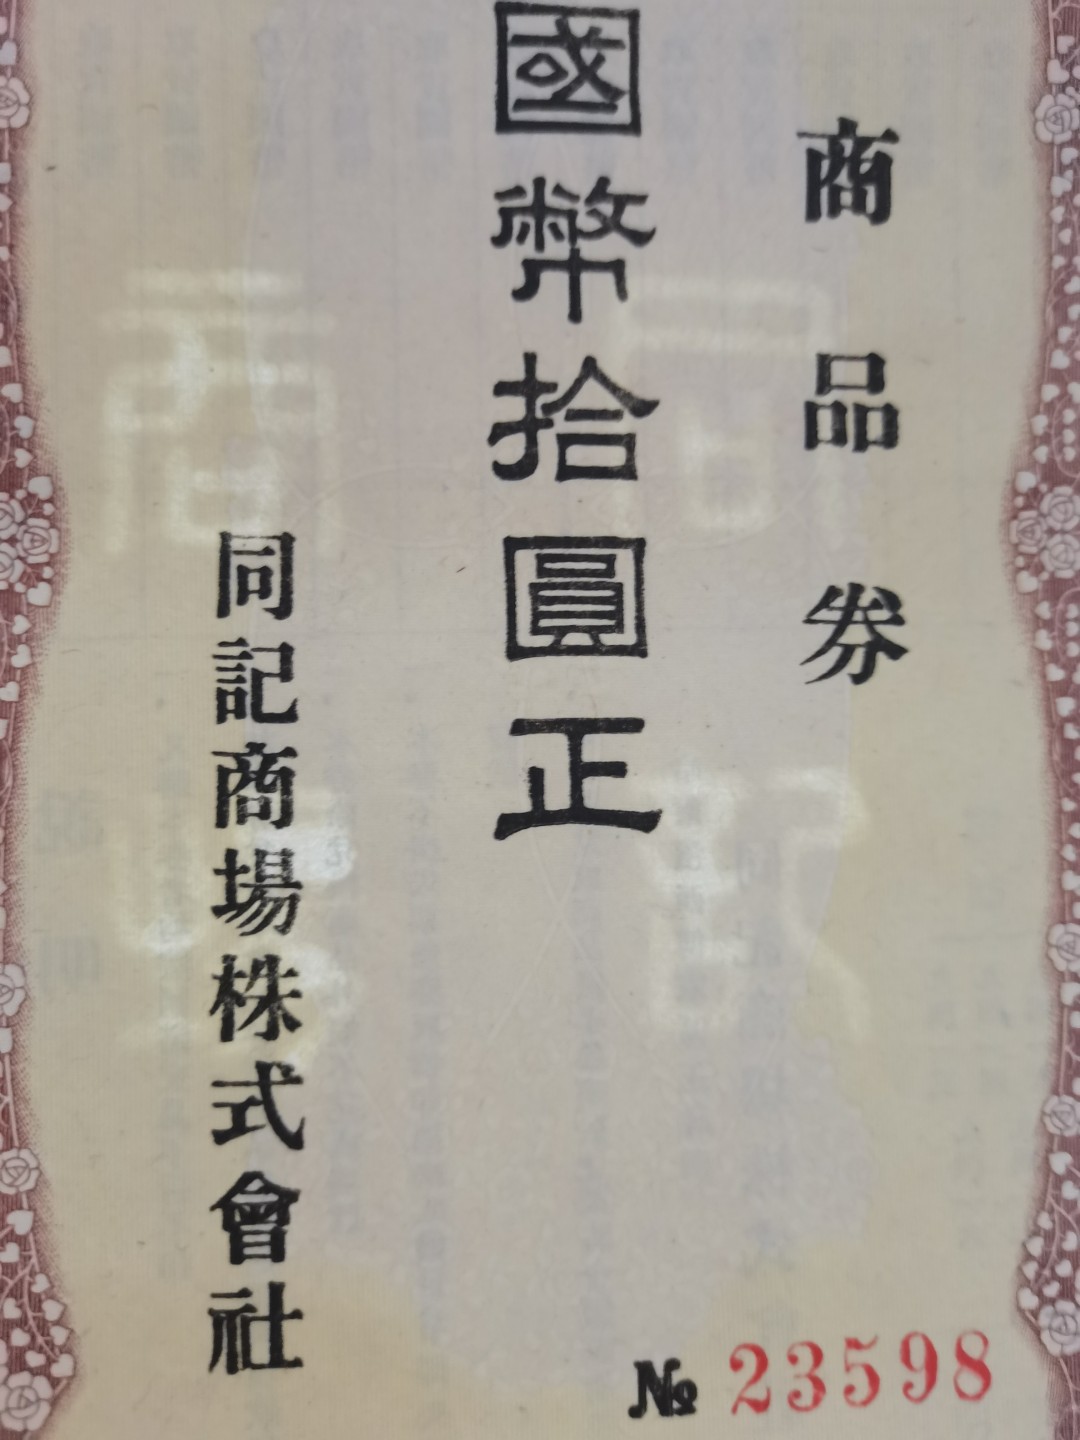 商品券
國幣拾圓正
同記商場株式會社
№ 23598